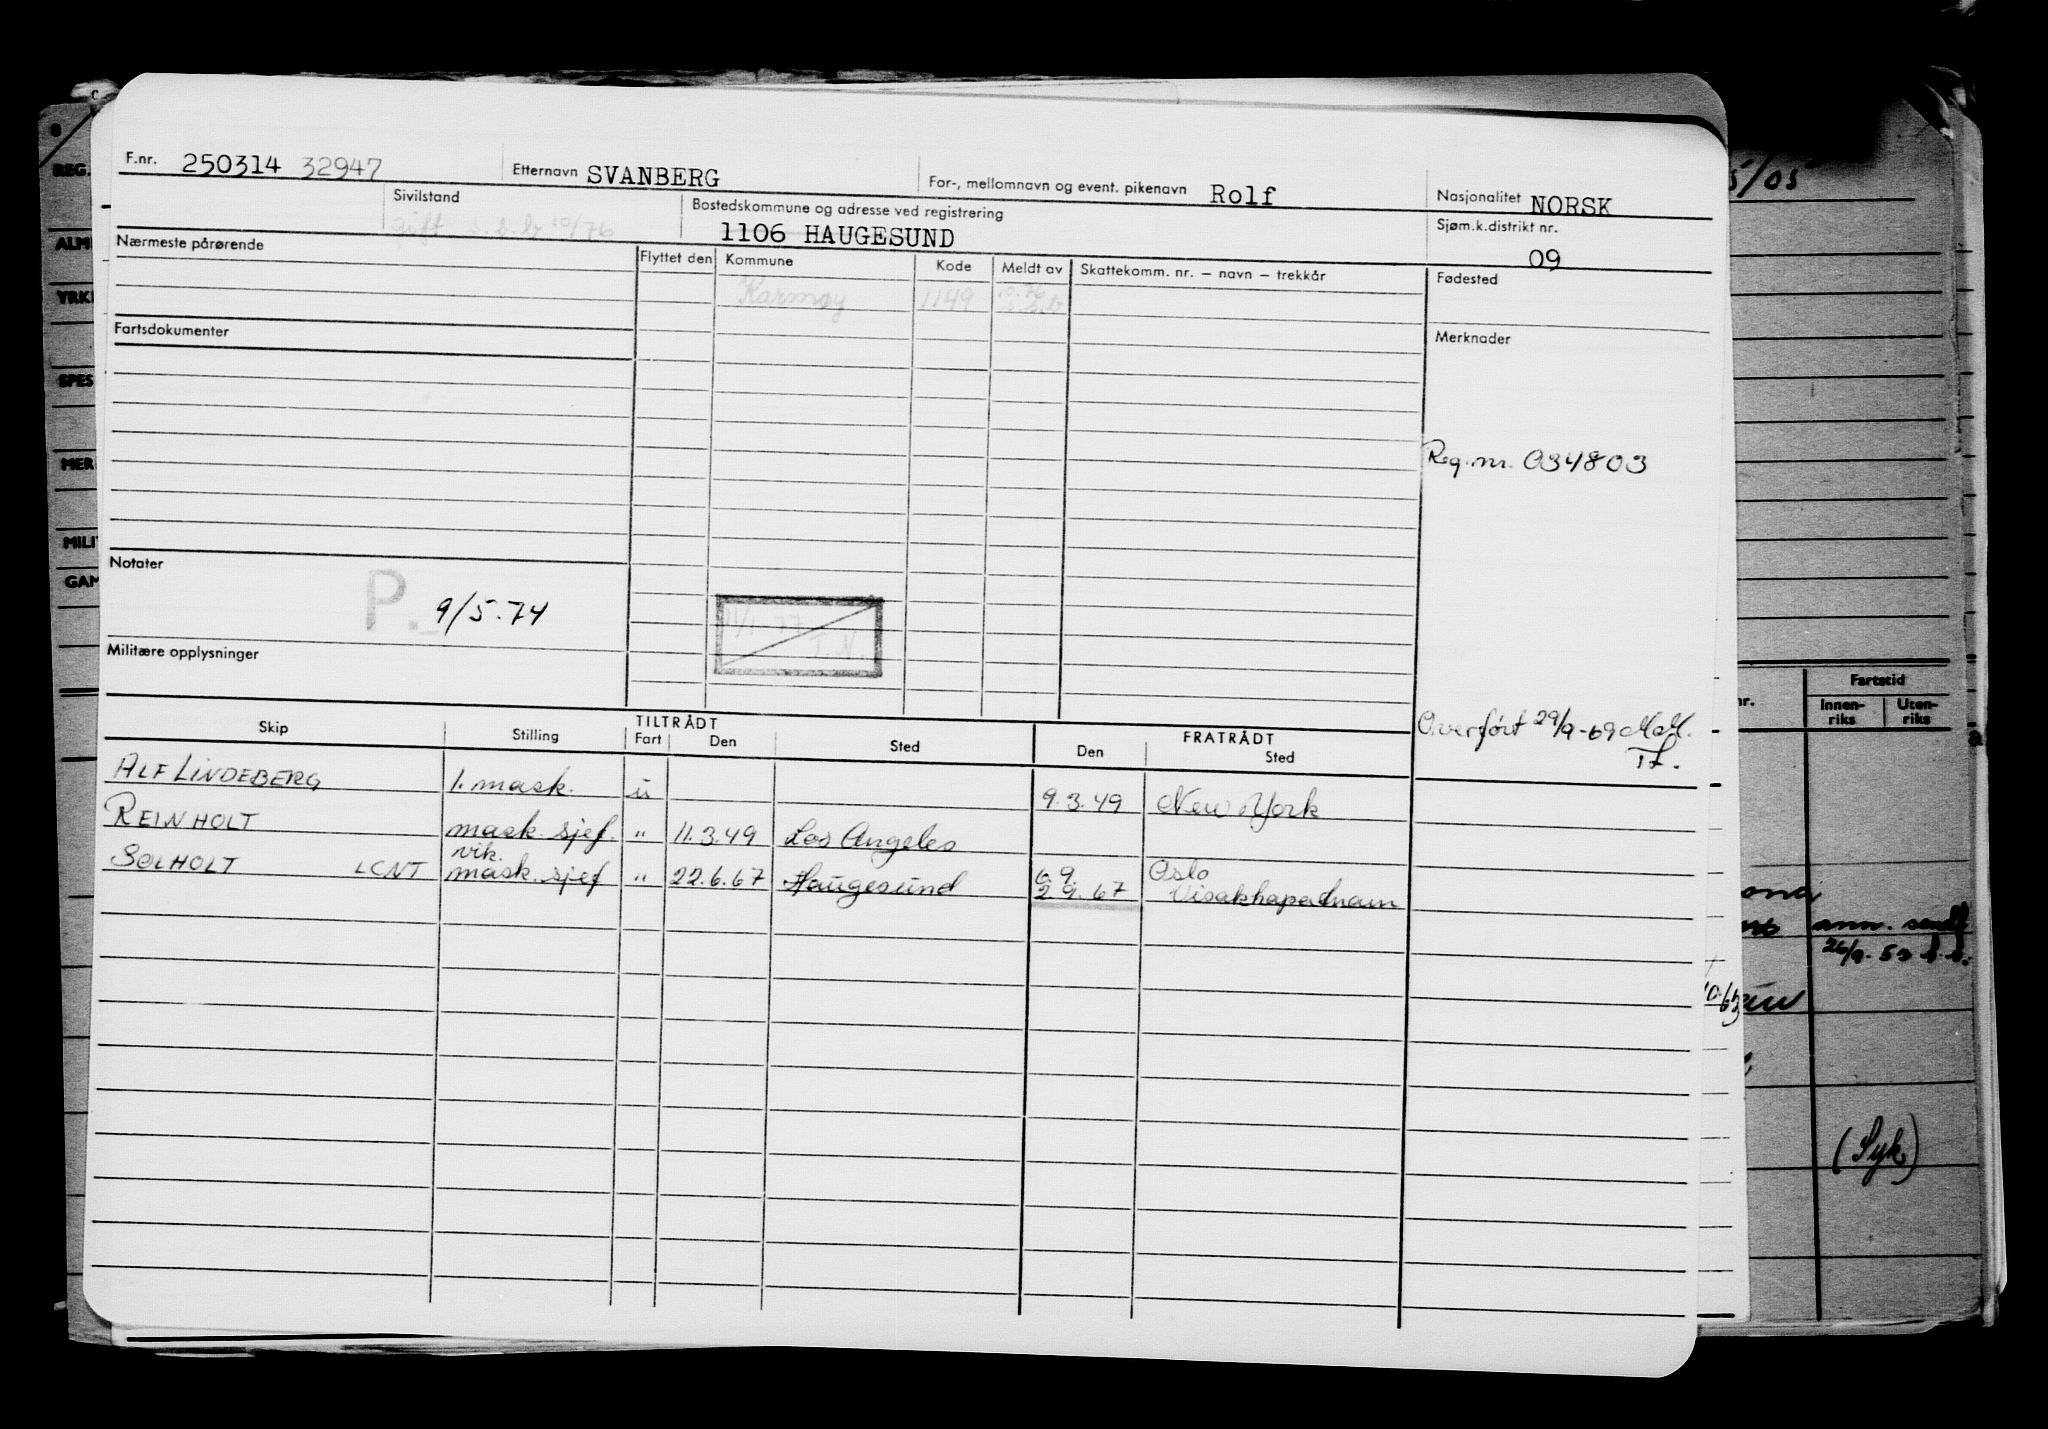 F.nr. 250314 32947 Etternavn SVANBERG For-, mellomnavn og event. pikenavn Rolf Nasjonalitet NORSK
Sivilstand gift s.b.b 10/76 Bostedskommune og adresse ved registrering 1106 HAUGESUND Sjøm.k.distrikt nr. 09
Nærmeste pårørende Flyttet den Kommune Kode Meldt av Skattekomm. nr. – navn – trekkår Fødested
Karmøy 1149
Fartsdokumenter Merknader
Reg.nr. 034803
Notater
P. 9/5.74
11/1-77 T.N.
Militære opplysninger
Overført 29/9-69
TILTRÅDT FRATRÅDT
Skip Stilling Fart Den Sted Den Sted
ALF LINDEBERG 1. mask. u 9.3.49 New York
REINHOLT mask. sjef. " 11.3.49 Los Angeles
vik. 6.9. Oslo
SOLHOLT LCNT mask. sjef " 22.6.67 Haugesund 2.9.67 Visakhapatnam
REG.
ALM
YRK
SPES
MER
MILI
GAM
5/05
nr. Fartstid
Innen-riks Uten-riks
ann. sendt
26/9-53
10.63
(Syk)